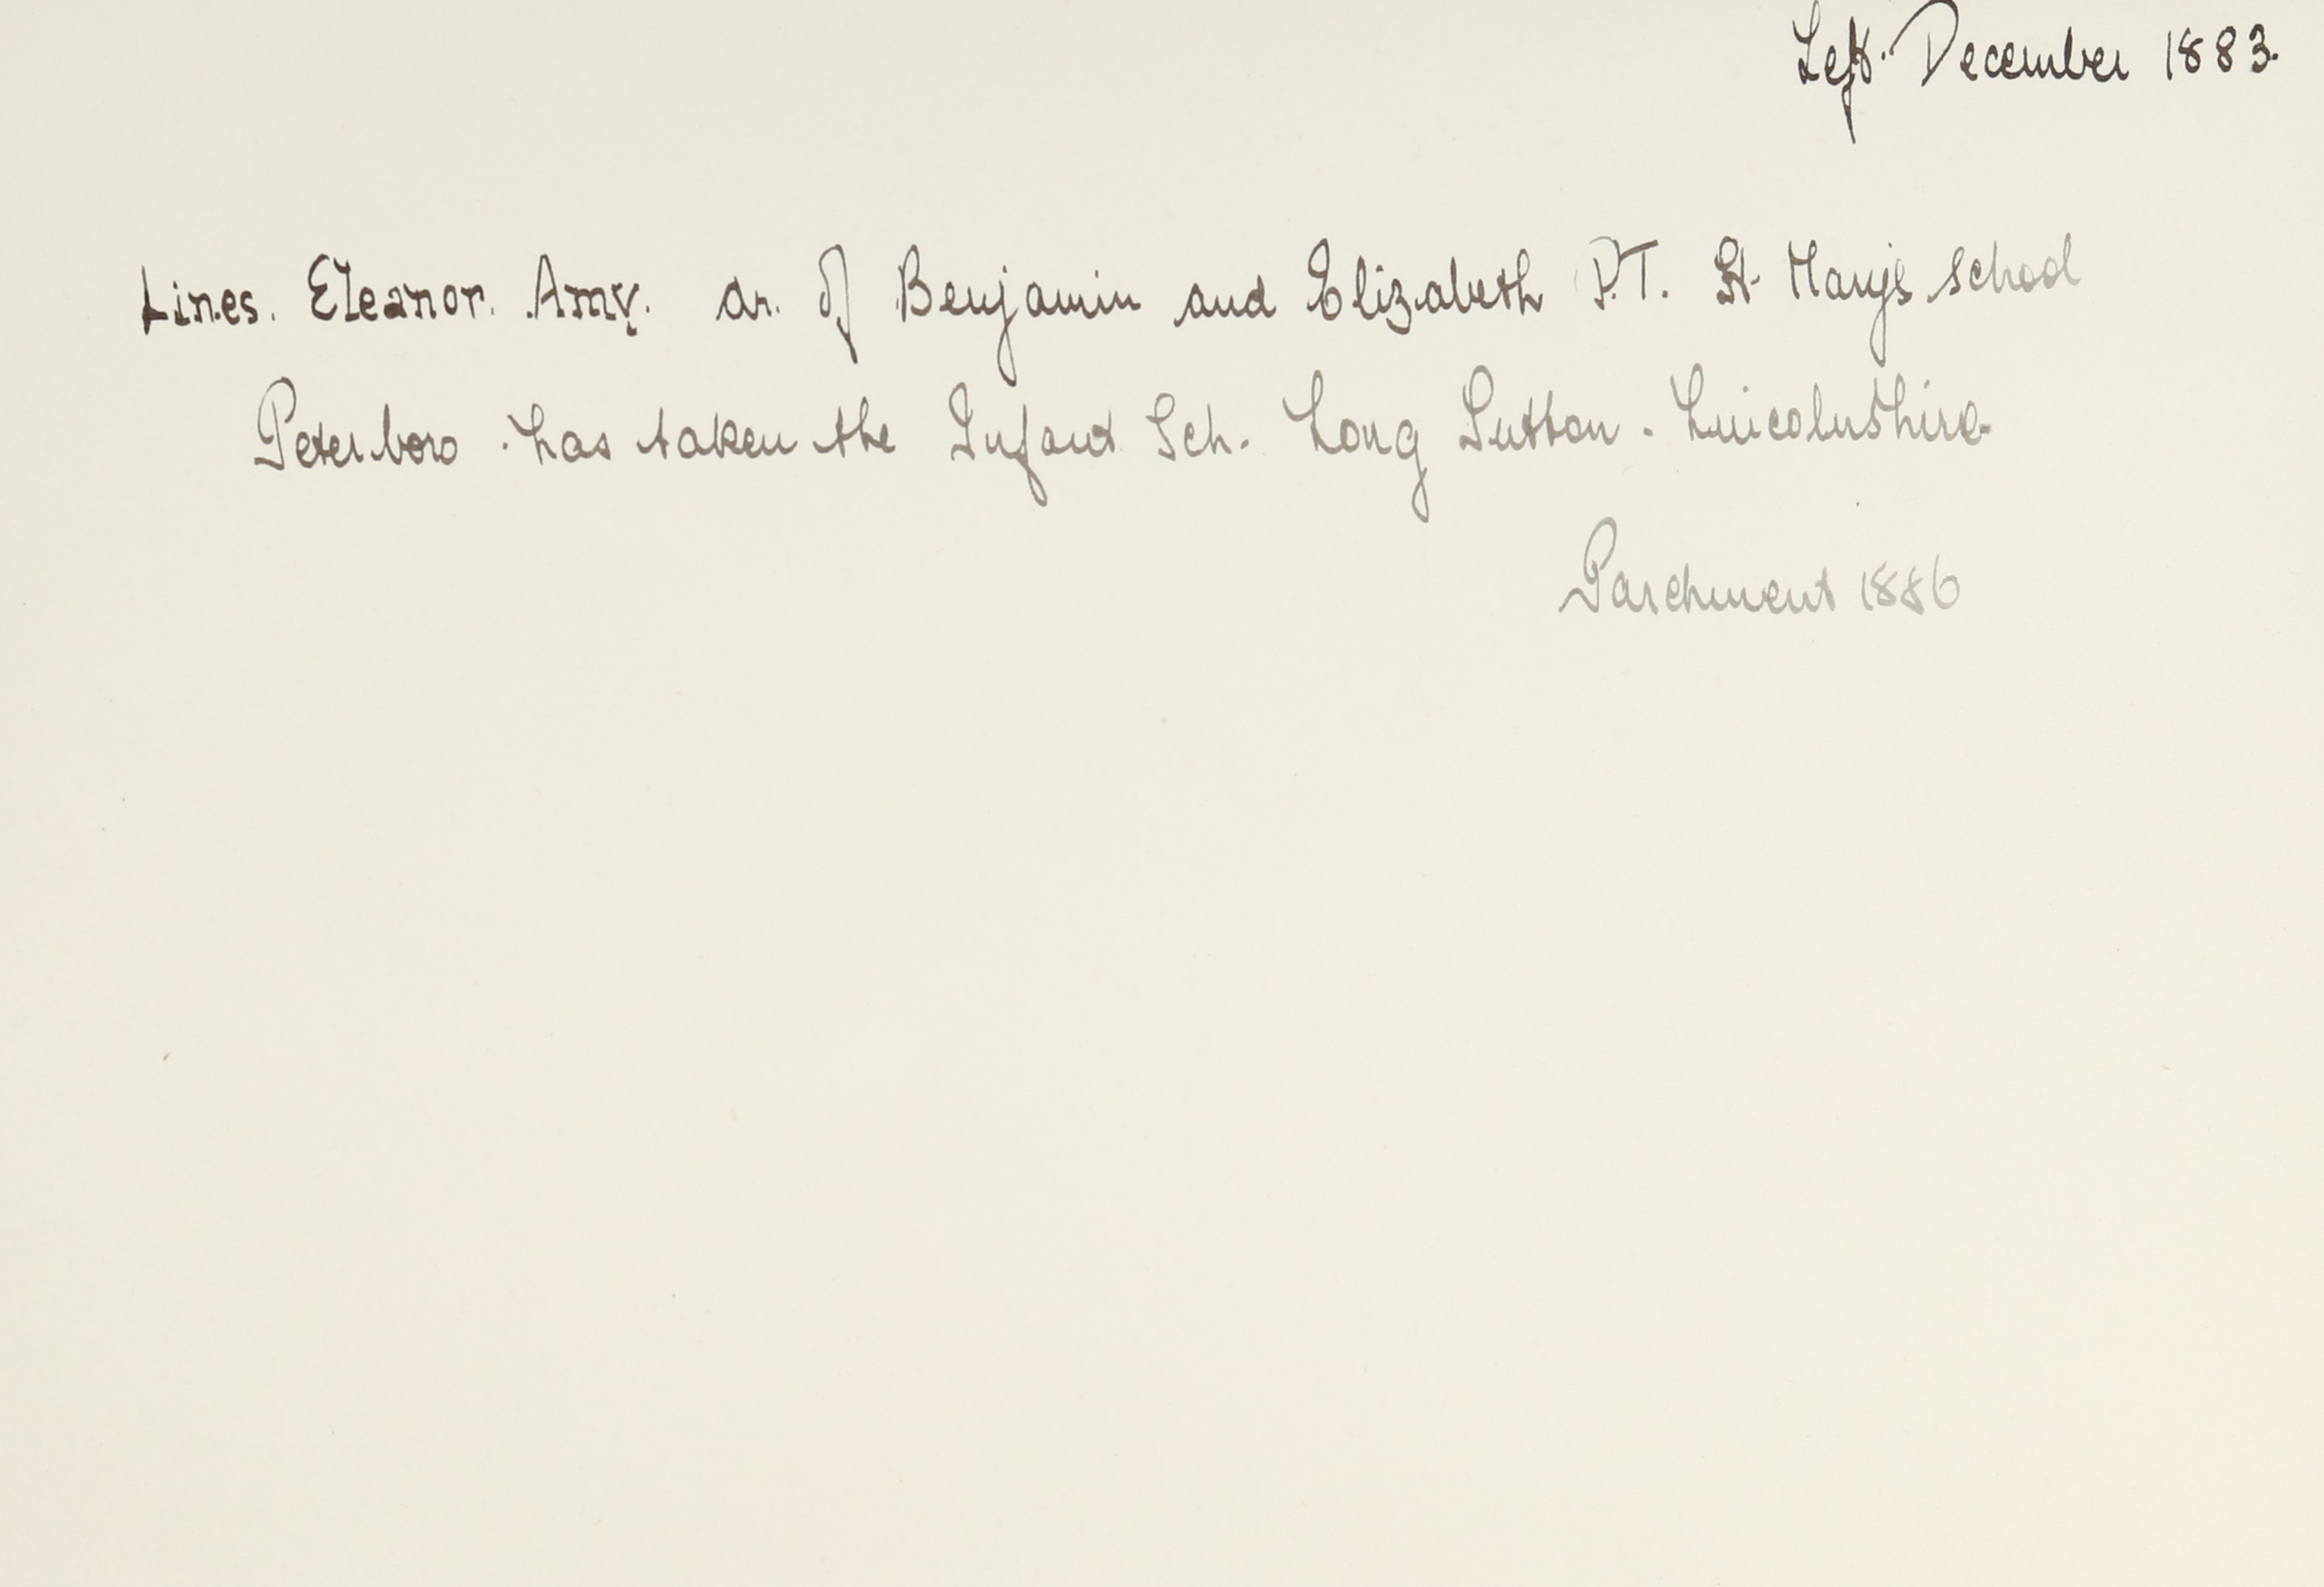 Left. December 1883.
Lines. Eleanor. Amy. dr. of Benjamin and Elizabeth P.T. St. Mary's School
Peterboro. has taken the Infant Sch. Long Sutton. Lincolnshire.
Parchment 1886